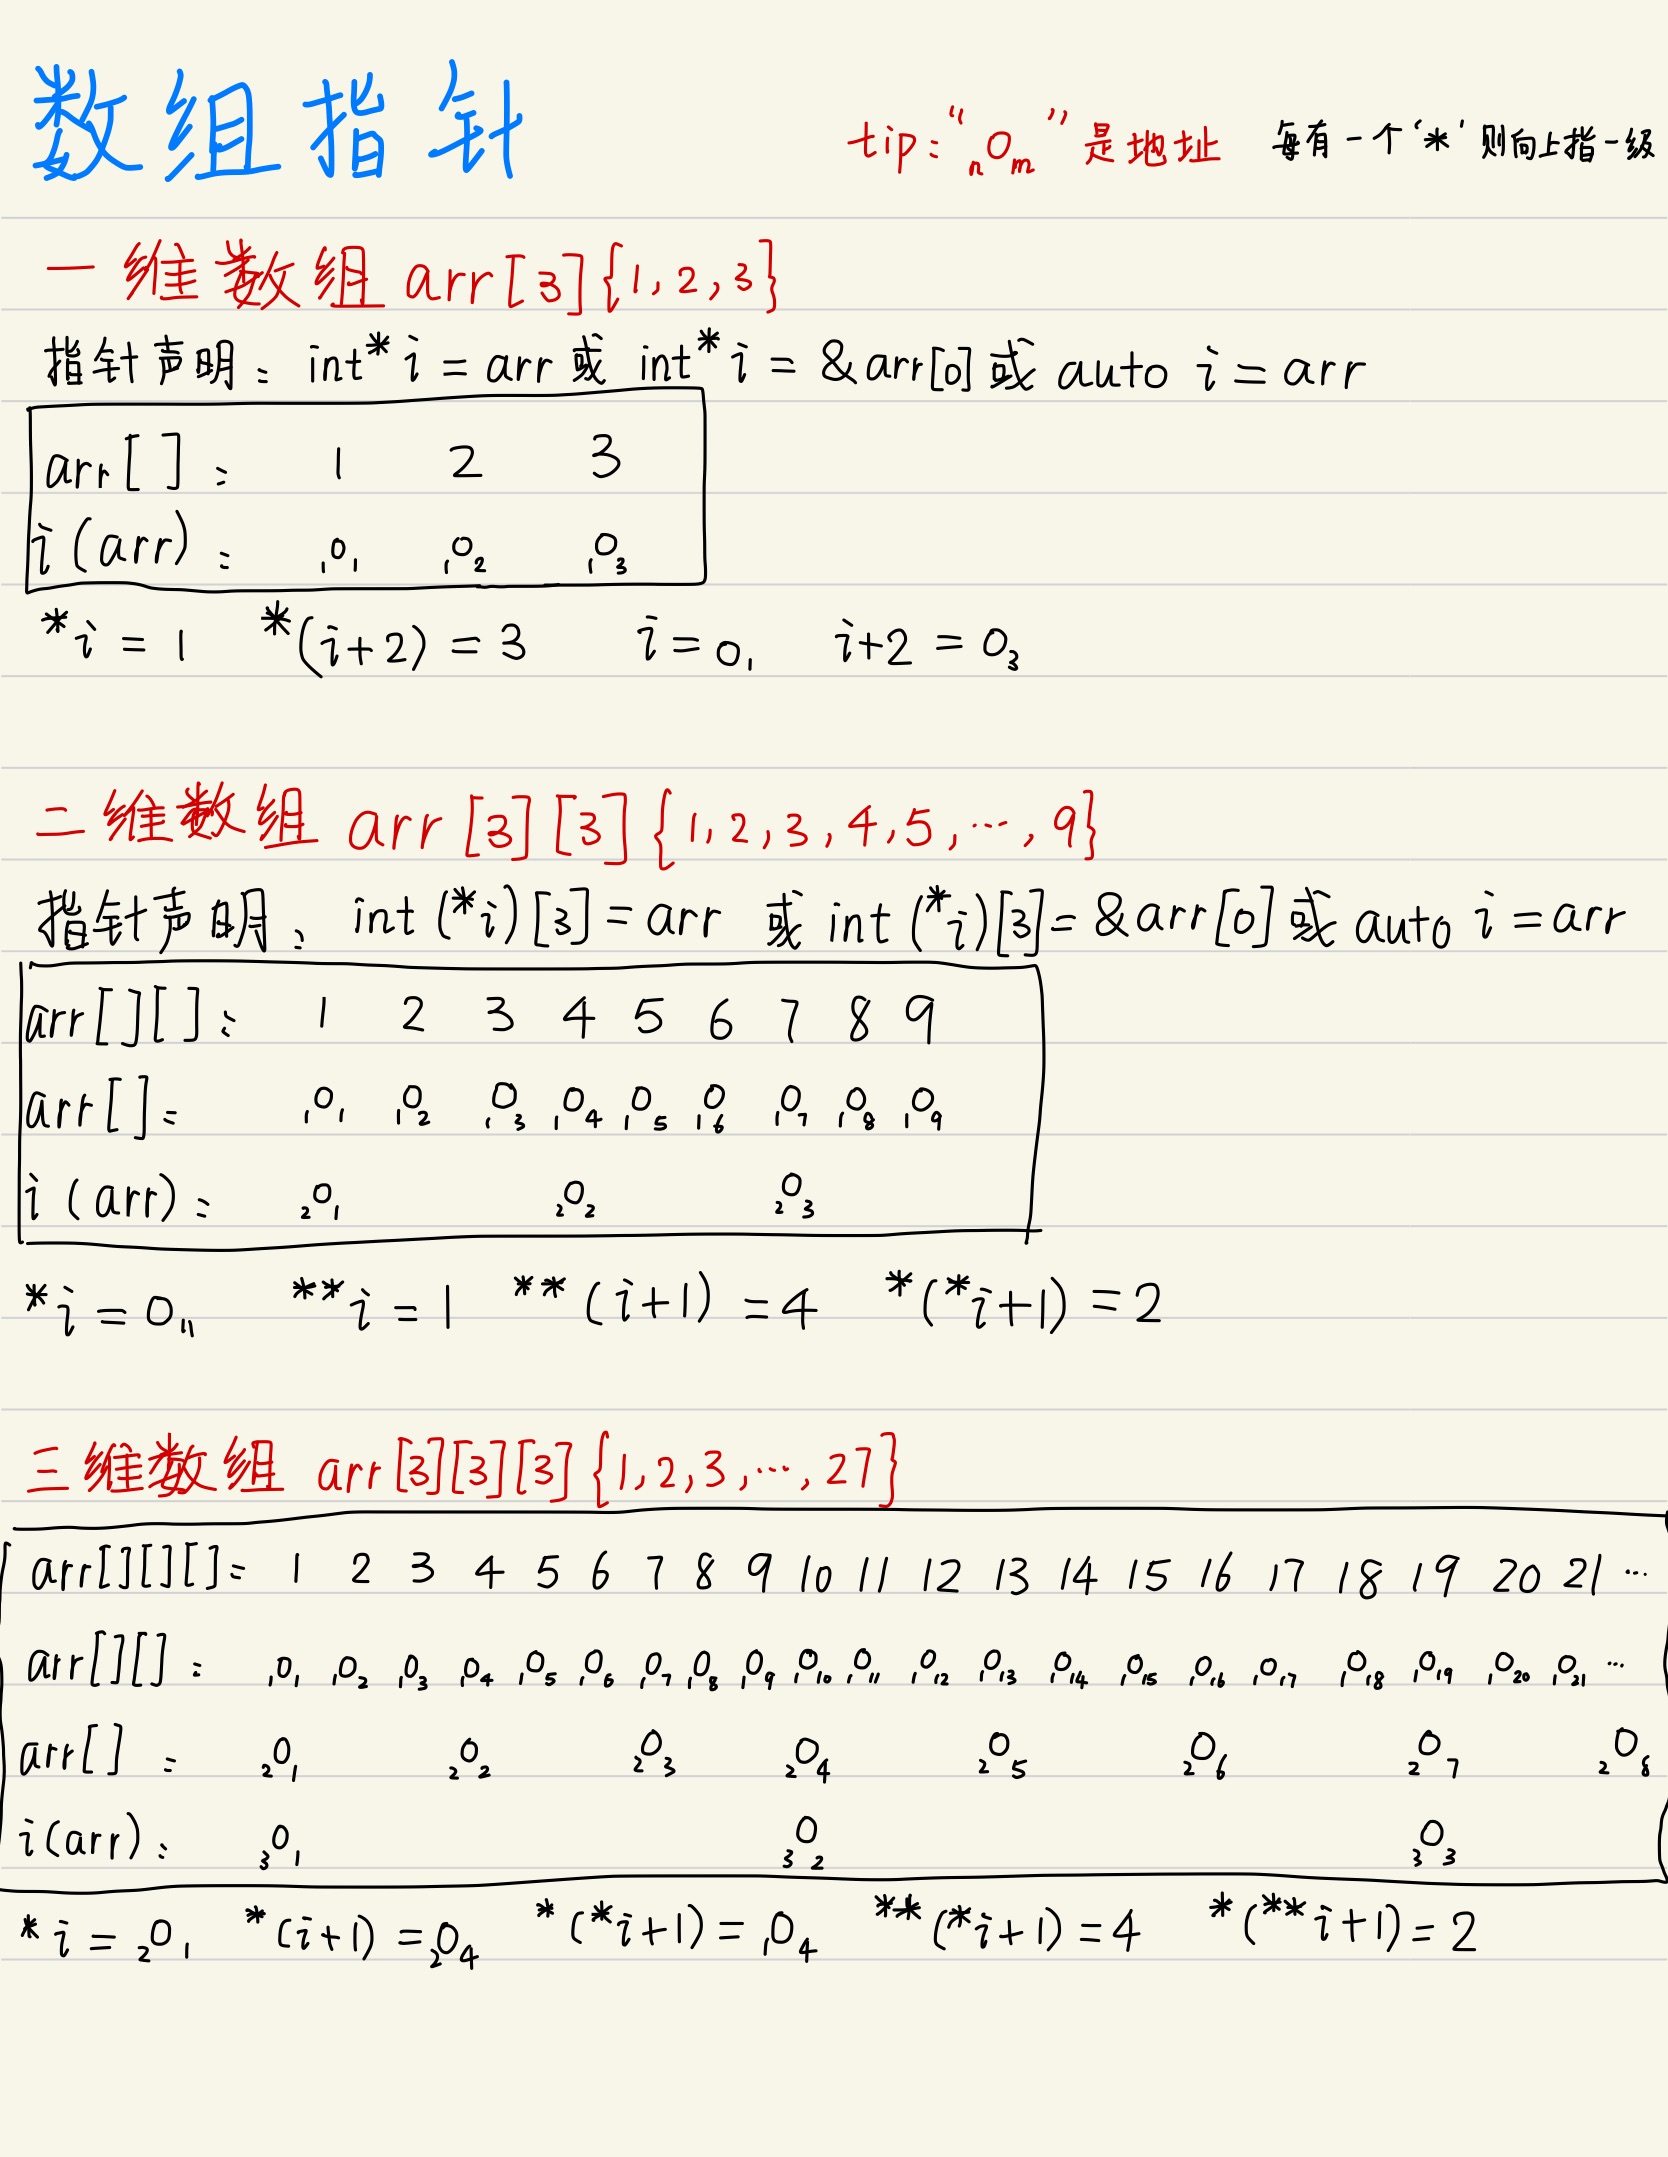 数组指针
tip:“ₙOₘ”是地址 每有一个‘*’则向上指一级
一维数组 arr[3]{1,2,3}
指针声明: int* i = arr 或 int* i = &arr[0] 或 auto i = arr
arr[ ]: 1 2 3
i(arr): ₁O₁ ₁O₂ ₁O₃
*i = 1 *(i+2) = 3 i = O₁ i+2 = O₃
二维数组 arr[3][3]{1,2,3,4,5,…,9}
指针声明: int (*i)[3] = arr 或 int (*i)[3] = &arr[0] 或 auto i = arr
arr[ ][ ]: 1 2 3 4 5 6 7 8 9
arr[ ]: ₁O₁ ₁O₂ ₁O₃ ₁O₄ ₁O₅ ₁O₆ ₁O₇ ₁O₈ ₁O₉
i(arr): ₂O₁ ₂O₂ ₂O₃
*i = O₁₁ **i = 1 **(i+1) = 4 *(*i+1) = 2
三维数组 arr[3][3][3]{1,2,3,…,27}
arr[ ][ ][ ]: 1 2 3 4 5 6 7 8 9 10 11 12 13 14 15 16 17 18 19 20 21 …
arr[ ][ ]: ₁O₁ ₁O₂ ₁O₃ ₁O₄ ₁O₅ ₁O₆ ₁O₇ ₁O₈ ₁O₉ ₁O₁₀ ₁O₁₁ ₁O₁₂ ₁O₁₃ ₁O₁₄ ₁O₁₅ ₁O₁₆ ₁O₁₇ ₁O₁₈ ₁O₁₉ ₁O₂₀ ₁O₂₁ …
arr[ ]: ₂O₁ ₂O₂ ₂O₃ ₂O₄ ₂O₅ ₂O₆ ₂O₇ ₂O₈
i(arr): ₃O₁ ₃O₂ ₃O₃
*i = ₂O₁ *(i+1) = ₂O₄ *(*i+1) = ₁O₄ **(*i+1) = 4 *(**i+1) = 2